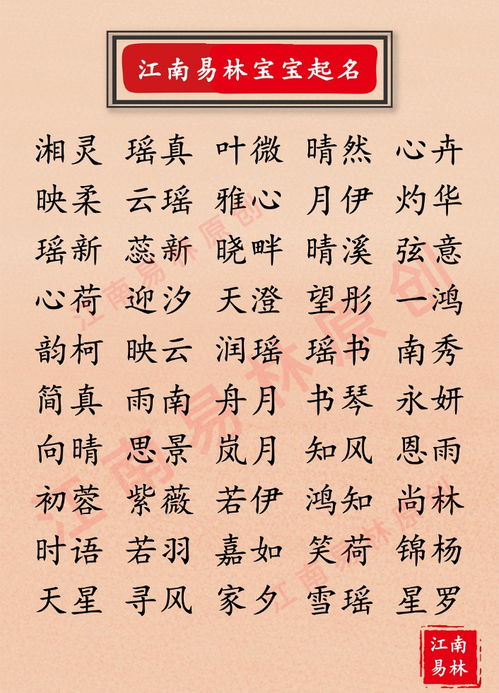 江南易林宝宝起名
湘灵 瑶真 叶微 晴然 心卉
映柔 云瑶 雅心 月伊 灼华
瑶新 蕊新 晓畔 晴溪 弦意
心荷 迎汐 天澄 望彤 一鸿
韵柯 映云 润瑶 瑶书 南秀
简真 雨南 舟月 书琴 永妍
向晴 思景 岚月 知风 恩雨
初蓉 紫薇 若伊 鸿知 尚林
时语 若羽 嘉如 笑荷 锦杨
天星 寻风 家夕 雪瑶 星罗
江南易林原创
江南易林原创
江南易林原创
江南
易林